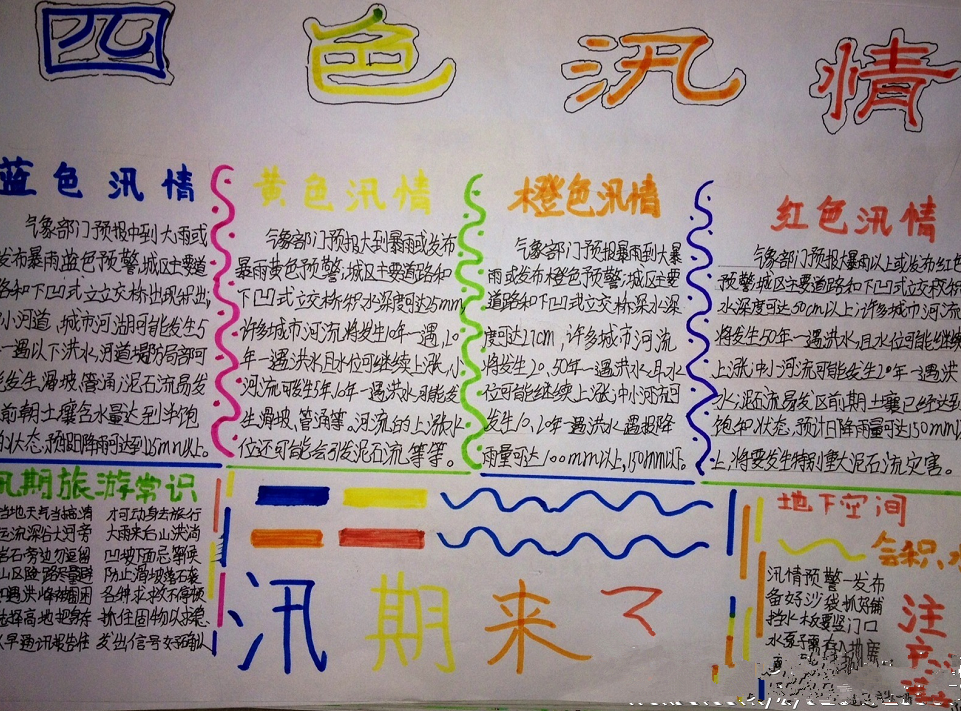 四色汛情
蓝色汛情
气象部门预报中到大雨或
发布暴雨蓝色预警,城区主要道
路和下凹式立交桥出现积水,
小河道,城市河湖可能发生5
一遇以下洪水,河道堤防局部可
能发生滑坡、管涌;泥石流易发
前期土壤含水量达到半饱
和状态,预报日降雨可达到
黄色汛情
气象部门预报大到暴雨或发布
暴雨黄色预警;城区主要道路和
下凹式立交桥积水深度可达25mm
许多城市河流将发生10年一遇,20
年一遇洪水且水位可能继续上涨,小
河流可发生5年,10年一遇洪水可能发
生滑坡、管涌等。河流的上涨水
位还可能会引发泥石流等等。
橙色汛情
气象部门预报暴雨到大暴
雨或发布橙色预警;城区主要
道路和下凹式立交桥深水深
度可达 许多城市河流
将发生20,50年一遇洪水,且水
位可能继续上涨;中小河流可
发生10,20年一遇洪水 遇报降
雨量可达100mm以上,150mm以下。
红色汛情
气象部门预报大暴雨以上或发布红色
预警,城区主要道路和下凹式立交积
水深度可达50cm以上;许多城市河流
将发生50年一遇洪水,且水位可能继续
上涨;中小河流可能发生20年一遇洪
水;泥石流易发区前期土壤已经达到
饱和状态,预计日降雨量可达150mm以
上,将要发生特别重大泥石流灾害。
汛期旅游常识
当地天气当搞清 才可动身去旅行
河流深谷大河旁 大雨来台山洪淌
岩石旁边勿逗留 凹坡下面忌等候
山区险路尽量避 防止滑坡落石砸
如遇洪峰被围困 各种求救不停顿
选择高地把身存 抓住固物以求稳
早通讯报告任 发出信号好确认
汛期来了
地下空间
会积水
汛情预警一发布
备好沙袋抓好铺
挡水板要竖门口
水泵
注
意